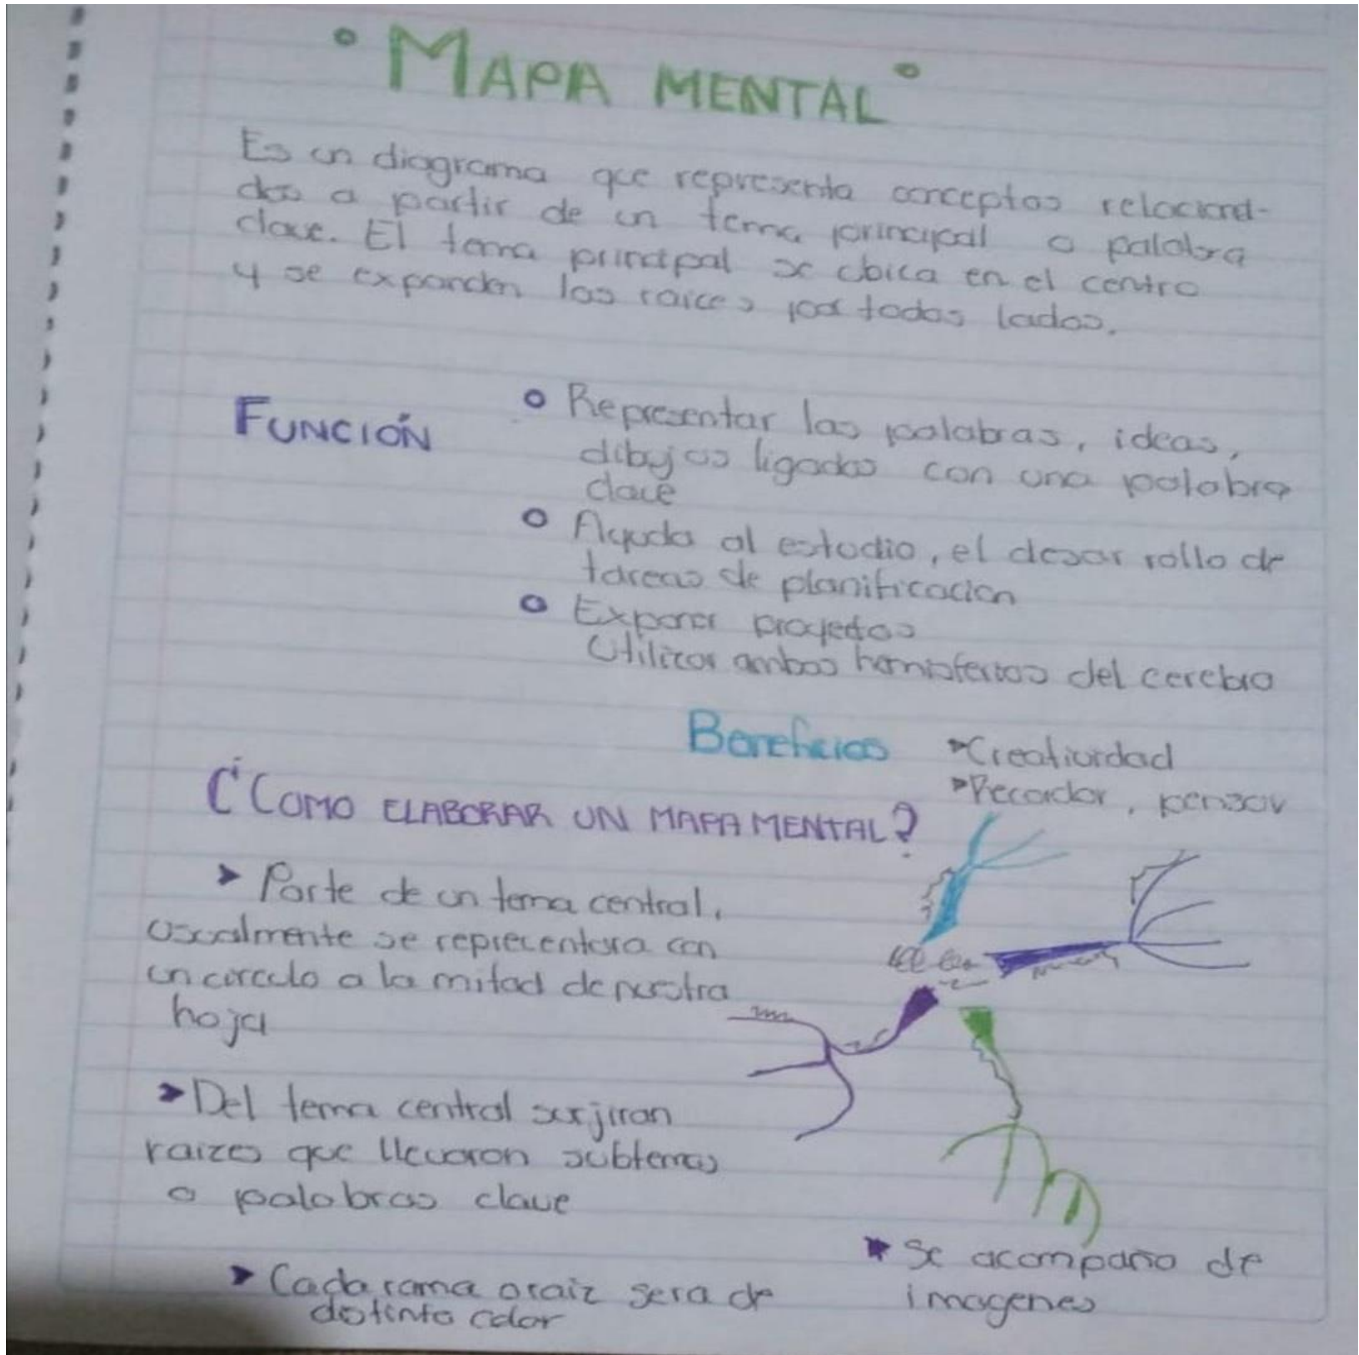 ° MAPA MENTAL °
Es un diagrama que representa conceptos relaciona-
dos a partir de un tema principal o palabra
clave. El tema principal se ubica en el centro
y se expanden las raices por todos lados.
FUNCIÓN
Representar las palabras, ideas,
dibujos ligados con una palabra
clave
Ayuda al estudio, el desarrollo de
tareas de planificacion
Exponer proyectos
Utilizar ambos hemisferios del cerebro
Beneficios
Creatividad
Recordar, pensar
¿COMO ELABORAR UN MAPA MENTAL?
Parte de un tema central,
usualmente se reprecentara con
un circulo a la mitad de nuestra
hoja
Del tema central surjiran
raizes que llevaran subtemas
o palabras clave
Cada rama o raiz sera de
distinto color
Se acompaña de
imagenes